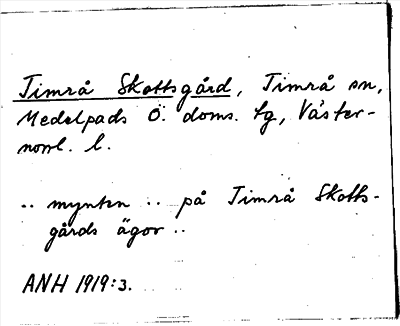 Timrå Skottsgård, Timrå sn,
Medelpads Ö. doms. tg, Väster-
norrl. l.
.. mynten .. på Timrå Skotts-
gårds ägor ..
ANH 1919:3.